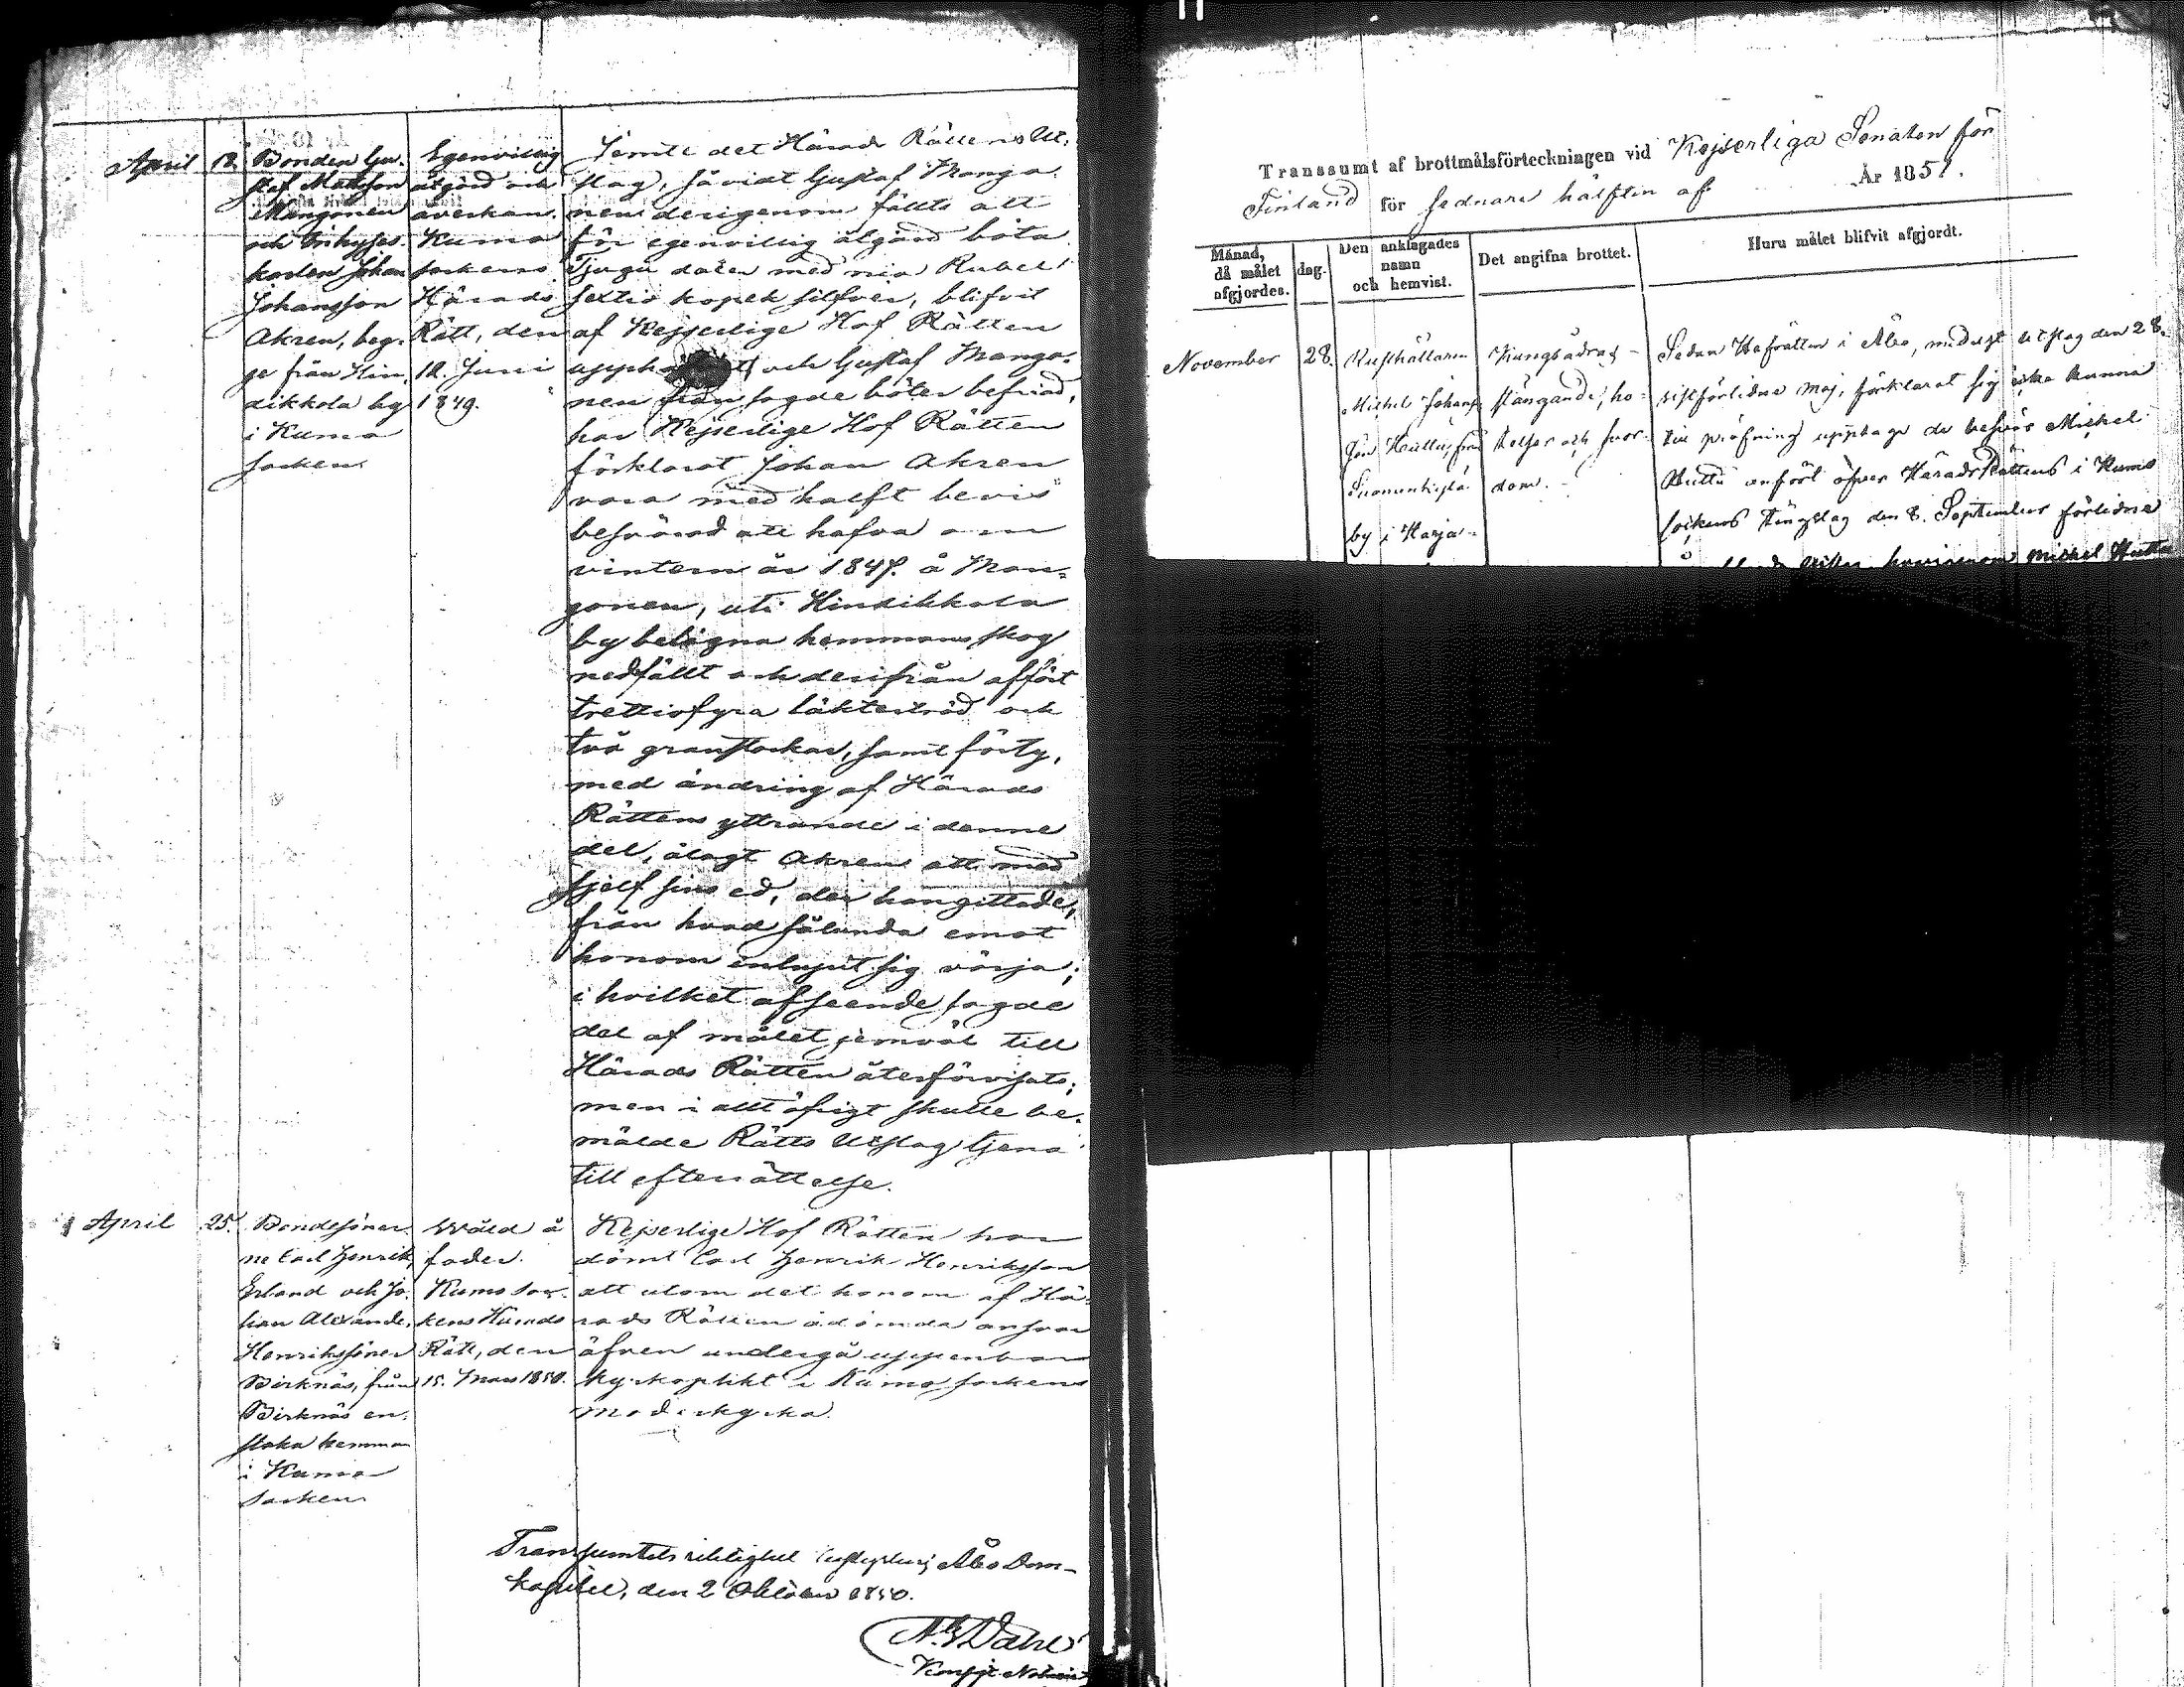 April 12. Bonden Gu-
staf Mattsson
Mangonen
och Inhyses
karlen Johan
Johansson
Akren, beg-
ge från Hin-
dikkola by
i Kumo
socken
Egenvillig
åtgärd och
åverkan.
Kumo
sockens
Härads
Rätt, den
12. Juni
1849.
Jemte det Härads Rättens Ut-
slag, såvidt Gustaf Mango-
nen derigenom fällts att
för egenvillig åtgärd böta
Tjugu daler med nio Rubel
sextio kopek silfver, blifvit
af Kejserlige Hof Rätten
och Gustaf Mango-
nen från sagde böter befriad,
har Kejserlige Hof Rätten
förklarat Johan Akren
vara med halft bevis
besvärad att hafva om
vintern år 1847. å Man-
gonen, uti Hindikkala
by belägna hemmans skog
nedfällt och derifrån affört
trettiofyra läkteträd och
två granstockar, samt förty,
med ändring af Härads
Rättens yttrande i denne
del, ålagt Akren att med
sjelf sins ed, der han gittade,
från hvad sålunda emot
honom inlupit sig värja;
i hvilket afseende sagde
del af målet jemväl till
Härads Rätten återförvisats;
men i allt öfrigt skulle be-
mälde Rätts Utslag tjena
till efterrättelse.
April 25. Bondesöner-
ne Carl Henrik,
Erland och Jo-
han Alexander
Henrikssöner
Birknäs, från
Birknäs en-
staka hemman
i Kumo
socken
Wåld å
fader.
Kumo soc-
kens Härads
Rätt, den
15. Mars 1850.
Kejserlige Hof Rätten har
dömt Carl Henrik Henriksson
att utom det honom af Hä-
rads Rätten ådömda ansvar
äfven undergå uppenbar
kyrkoplikt i Kumo sockens
moderkyrka.
Transsumtets riktighet Åbo Dom-
kapitel, den 2 Oktober 1850.
Notarie
Transsumt af brottmålsförteckningen vid Kejserliga Senaten för
Finland för sednare hälften af År 1851.
Månad,
då målet
afgjordes.
dag.
Den anklagades
namn
och hemvist.
Det angifna brottet.
Huru målet blifvit afgjordt.
November 28. Rusthållaren
Michel Johans-
son Huttu, från
by i Harja-
Kungsådras
stängande, ho-
telser och svor-
dom.
Sedan Hofrätten i Åbo, medelst utslag den 28.
sistförlidne Maj, förklarat sig icke kunna
till pröfning upptaga de besvär Michel
Huttu anfört öfver HäradsRättens i Kumo
sockens tingslag den 8. September förlidne
Michel Huttu